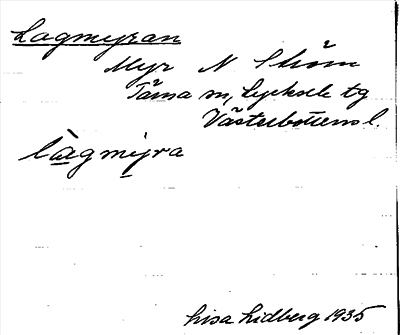 Lagmyran
Myr N Ström
Tärna sn, Lycksele tg
Västerbottens l.
lågmyra
Lisa Lidberg 1935